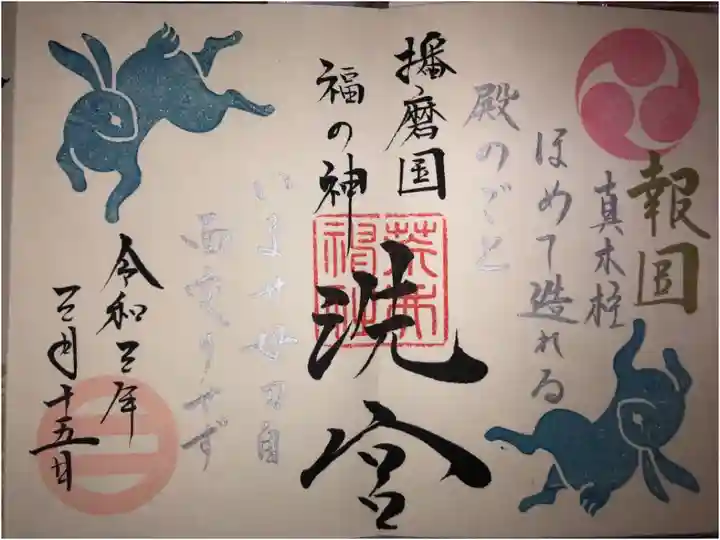 報国
真木柱
ほめて造れる
殿のごと
いませ母刀自
面変りせず
播磨国
福の神
洗宮
令和三年
三月十五日